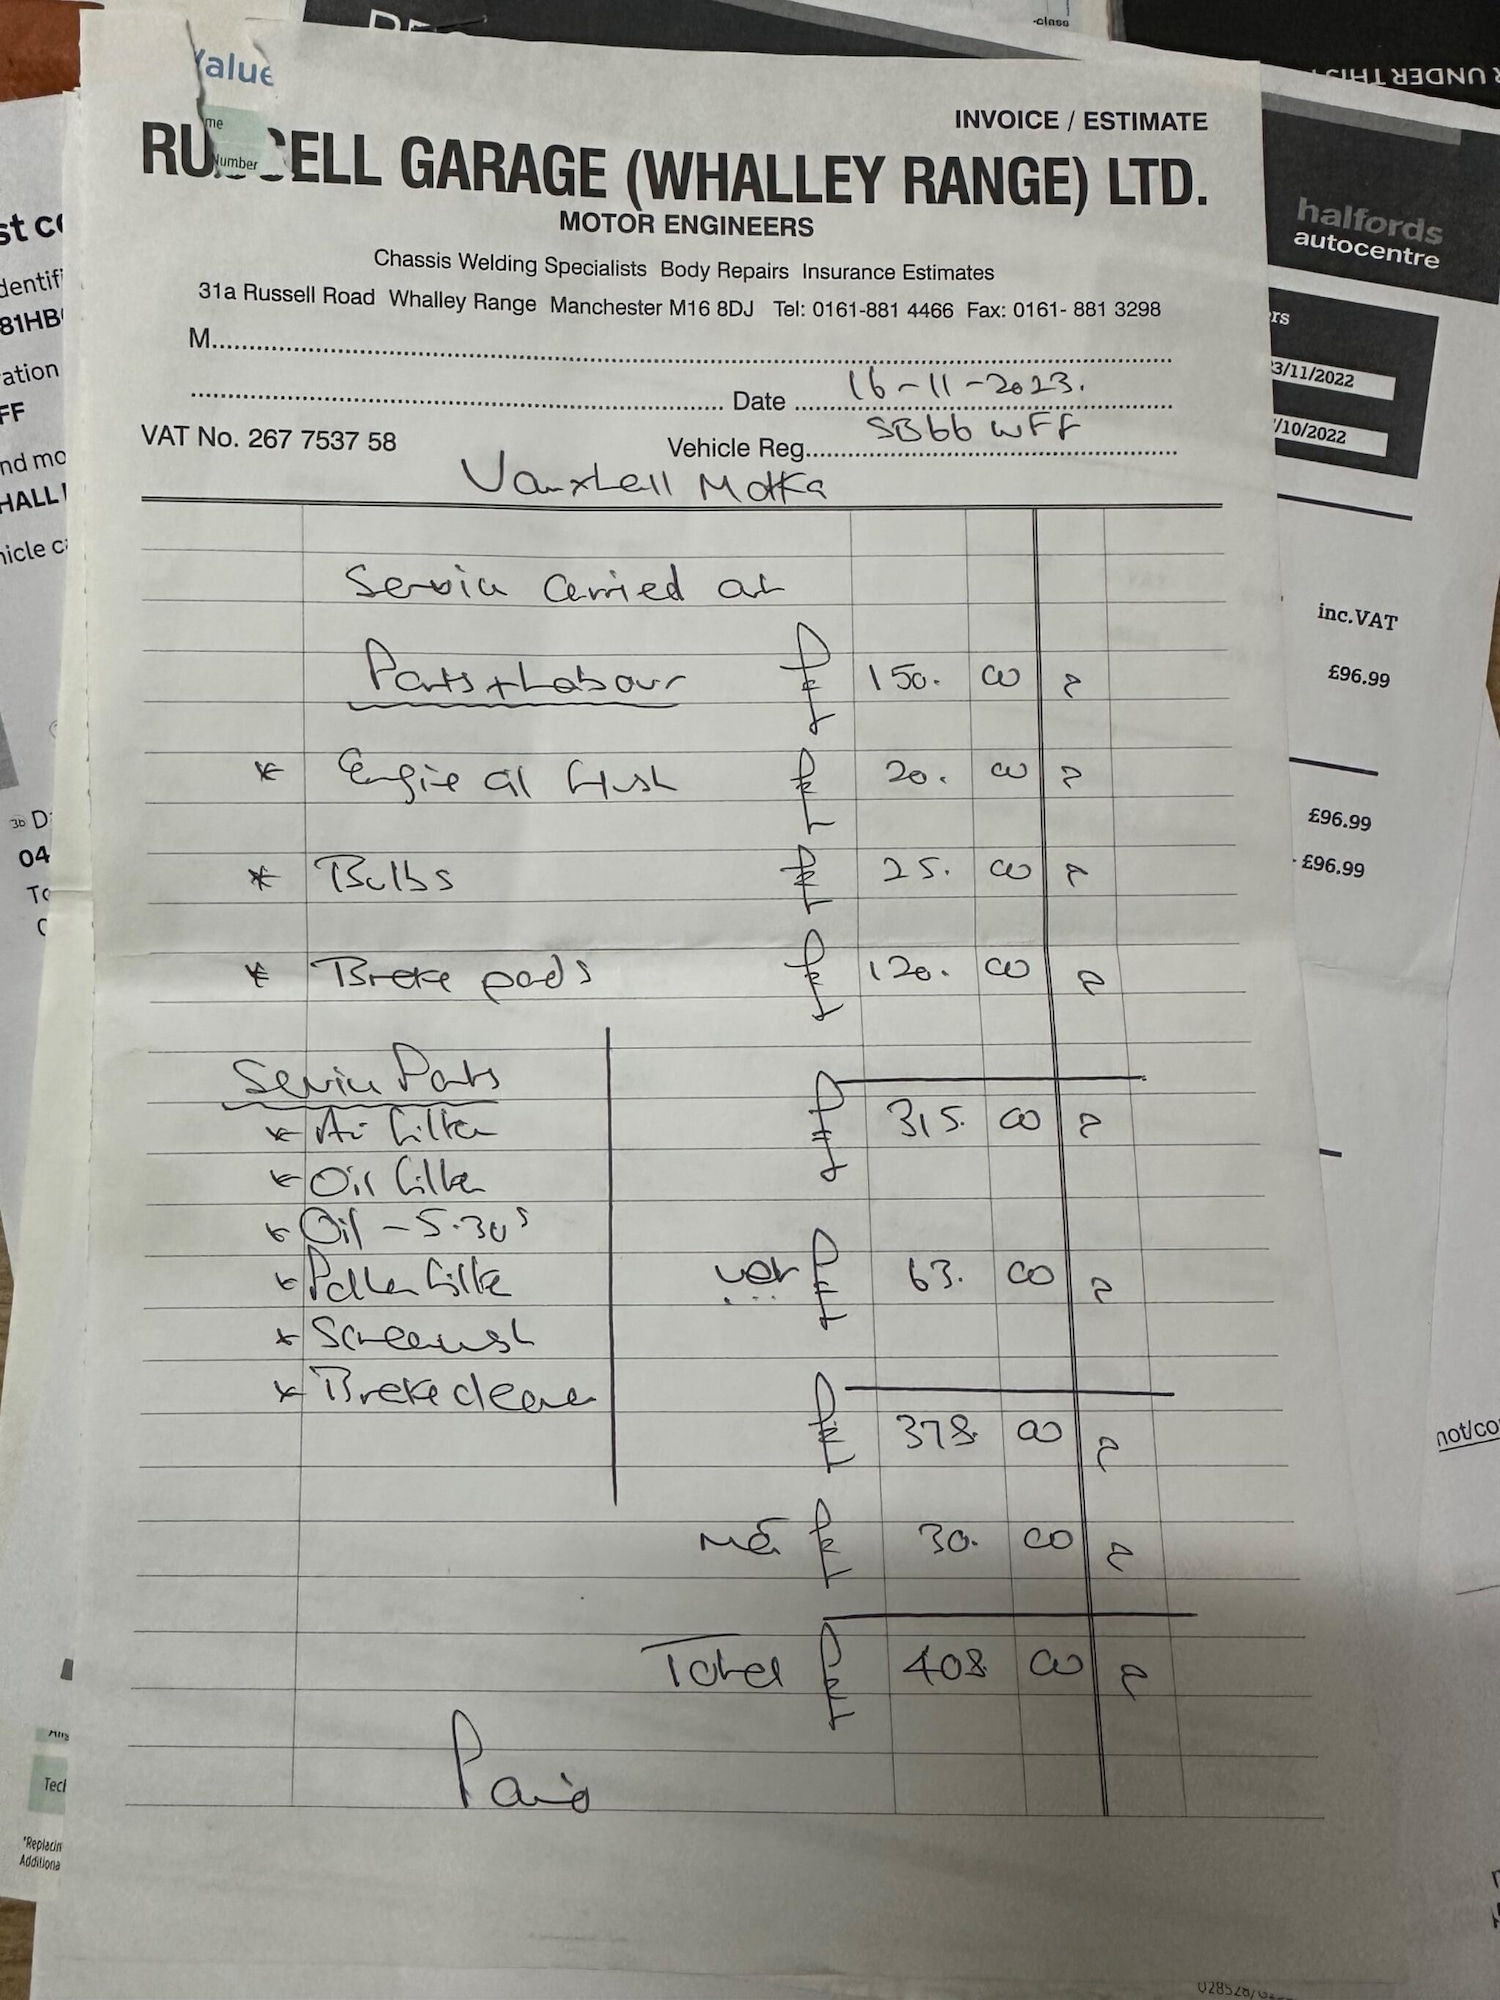 Value
me
Number
INVOICE / ESTIMATE
RUSSELL GARAGE (WHALLEY RANGE) LTD.
MOTOR ENGINEERS
Chassis Welding Specialists Body Repairs Insurance Estimates
31a Russell Road Whalley Range Manchester M16 8DJ Tel: 0161-881 4466 Fax: 0161- 881 3298
M
Date 16-11-2023.
VAT No. 267 7537 58 Vehicle Reg. SB66 WFF
Vauxhall Mokka
Service carried out
Parts + Labour 150. 00
* Engine oil flush 20. 00
* Bulbs 25. 00
* Brake pads 120. 00
Service Parts
* Air filter 315. 00
* Oil filter
* Oil - 5.30
* Pollen filter VAT 63. 00
* Screenwash
* Brake cleaner
378. 00
MOT 30. 00
Total 408 00
Paid
halfords
autocentre
rs
3/11/2022
/10/2022
inc.VAT
£96.99
£96.99
- £96.99
not/co
-class
R UNDER THIS
st c
dentif
81HB
ration
FF
nd mo
HALL
hicle c
3b D
04
To
Tech
*Replacin
Additiona